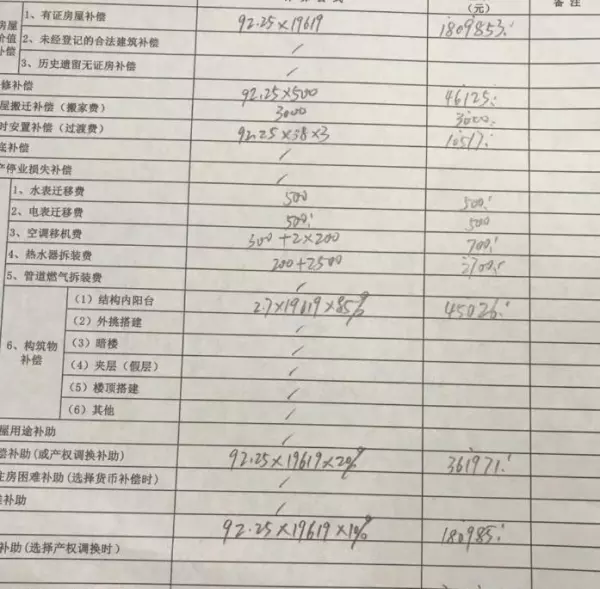 （元） 备注
房屋价值补偿 1、有证房屋补偿 92.25×19619 1809853.
2、未经登记的合法建筑补偿 /
3、历史遗留无证房补偿 /
修补偿 92.25×500 46125.
屋搬迁补偿（搬家费） 3000 3000.
时安置补偿（过渡费） 92.25×38×3 10517.
底补偿 /
产停业损失补偿 /
1、水表迁移费 500 500.
2、电表迁移费 500. 500
3、空调移机费 300+2×200 700.
4、热水器拆装费 200+2500 2700.
5、管道燃气拆装费 /
6、构筑物补偿 （1）结构内阳台 2.7×19619×85% 45026.
（2）外挑搭建 /
（3）暗楼 /
（4）夹层（假层） /
（5）楼顶搭建 /
（6）其他 /
屋用途补助 /
偿补助（或产权调换补助） 92.25×19619×20% 361971.
住房困难补助（选择货币补偿时） /
补助 /
92.25×19619×10% 180985.
补助（选择产权调换时）
/